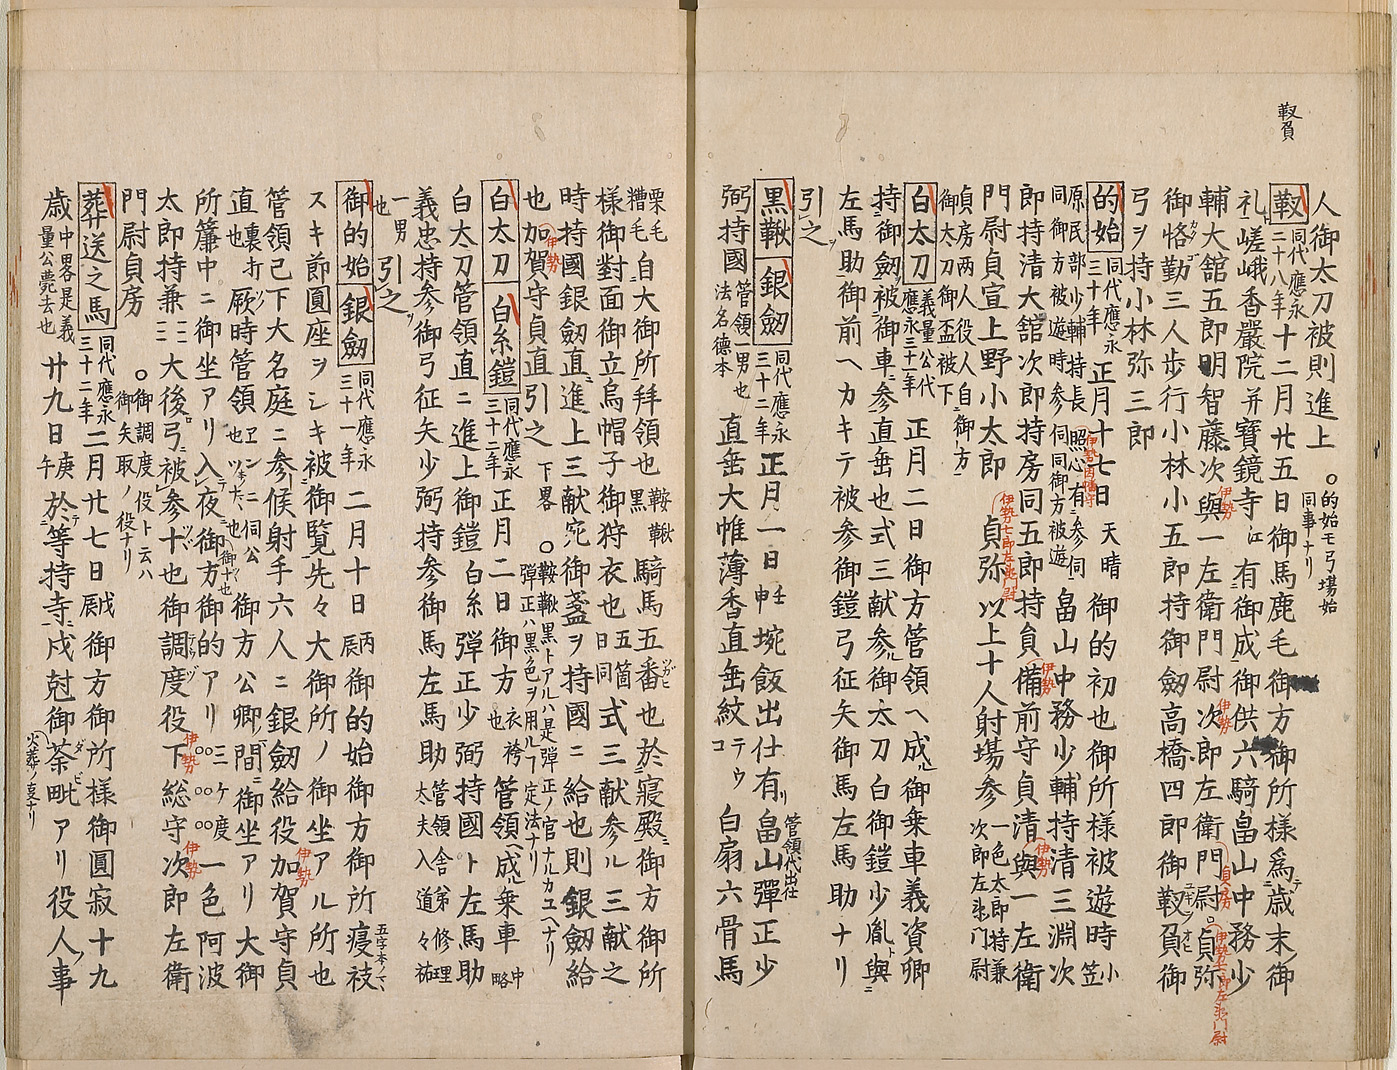 靫負
人御太刀被則進上 ○的始モ弓場始同事ナリ
靫 同代應永二十八年 十二月廿五日御馬鹿毛御方御所様爲歳末御
礼嵯峨香嚴院并寶鏡寺江有御成御供六騎畠山中務少
輔大舘五郎明智藤次與一左衛門尉次郎左衛門尉貞弥
伊勢
伊勢
貞房
伊勢七郎左衛門尉
御恪勤三人歩行小林小五郎持御劔高橋四郎御靫負御
弓ヲ持小林弥三郎
的始 同代應永三十年 正月十七日 天晴 御的初也御所様被遊時小笠
伊勢因幡守
原民部少輔持長照心有参伺同御方被遊時参伺同御方被遊 畠山中務少輔持清三淵次
郎持清大舘次郎持房同五郎持負備前守貞清與一左衛
伊勢
伊勢
門尉貞宣上野小太郎 貞弥 以上十人射場参 一色太郎持兼次郎左衛門尉
伊勢七郎左衛門尉
貞房两人役人自御方御太刀御盃被下
白太刀 義量公代應永三十一年 正月二日御方管領ヘ成御乗車義資卿
持御劔被御車参直垂也式三献参御太刀白御鎧少胤與
左馬助御前ヘカキテ被参御鎧弓征矢御馬左馬助ナリ
引之
黒鞦 銀劔 同代應永三十二年 正月一日 壬申 埦飯出仕有畠山彈正少
管領代出仕
弼持國 管領一男也法名德本 直垂大帷薄香直垂紋 テウコ 白扇六骨馬
栗毛糟毛 自大御所拜領也 鞍鞦黒 騎馬五番也於寢殿御方御所
様御對面御立烏帽子御狩衣也 五箇日同 式三献参ル三献之
時持國銀劔直進上三献宛御盞ヲ持國ニ給也則銀劔給
也加賀守貞直引之 下畧 ○鞍鞦黒トアルハ是彈正ノ官ナルカユヘナリ彈正ハ黒色ヲ用ルフ定法ナリ
伊勢
白太刀 白糸鎧 同代應永三十二年 正月二日御方 衣袴也 管領ヘ成乗車 中略
白太刀管領直ニ進上御鎧 白糸 彈正少弼持國ト左馬助
義忠持参御弓征矢少弼持参御馬左馬助 管領舎弟修理太夫入道々祐
一男也 引之
御的始 銀劔 同代應永三十一年 二月十日 丙辰 御的始御方御所㾱被
五字本ノマヽ
スキ節圓座ヲシキ被御覧先々大御所ノ御坐アル所也
管領己下大名庭ニ参候射手六人ニ銀劔給役加賀守貞
伊勢
直也裏打厥時管領也 御方公卿間ニ御坐アリ大御
所簾中ニ御坐アリ入夜御方御的アリ三ケ度一色阿波
太郎持兼 大後弓被参十也御調度役下総守次郎左衛
伊勢
伊勢
門尉貞房 ○御調度役ト云ハ御矢取ノ役ナリ
葬送之馬 同代應永三十二年 二月廿七日 戊辰 御方御所様御圓寂十九
歳 中畧是義量公薨去也 廿九日 庚午 於等持寺戌尅御荼毗アリ役人事
火葬ノ夏ナリ